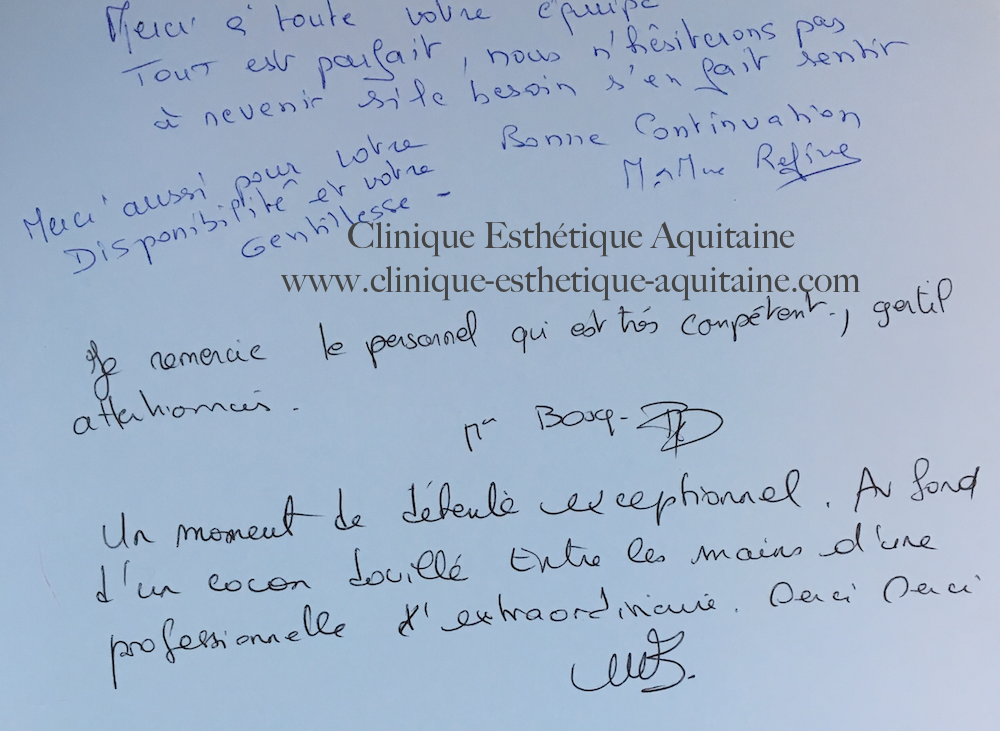 Merci à toute votre équipe
Tout est parfait, nous n'hêsiterons pas
à revenir si le besoin s'en fait sentir
Bonne Continuation
M & Mme
Merci aussi pour votre
Disponibilité et votre
Gentillesse -
Clinique Esthétique Aquitaine
www.clinique-esthetique-aquitaine.com
Je remercie le personnel qui est très compétent, gentil
attentionnés.
Un moment de détente exceptionnel. Au fond
d'un cocon douillé Entre les mains d'une
professionnelle d'extraordinaire. Merci Merci